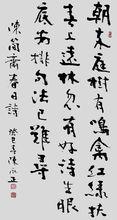 朝來庭樹有鳴禽紅綠扶
春上遠林忽有好詩生眼
底安排句法已難尋
陳簡齋春日詩 陳永正